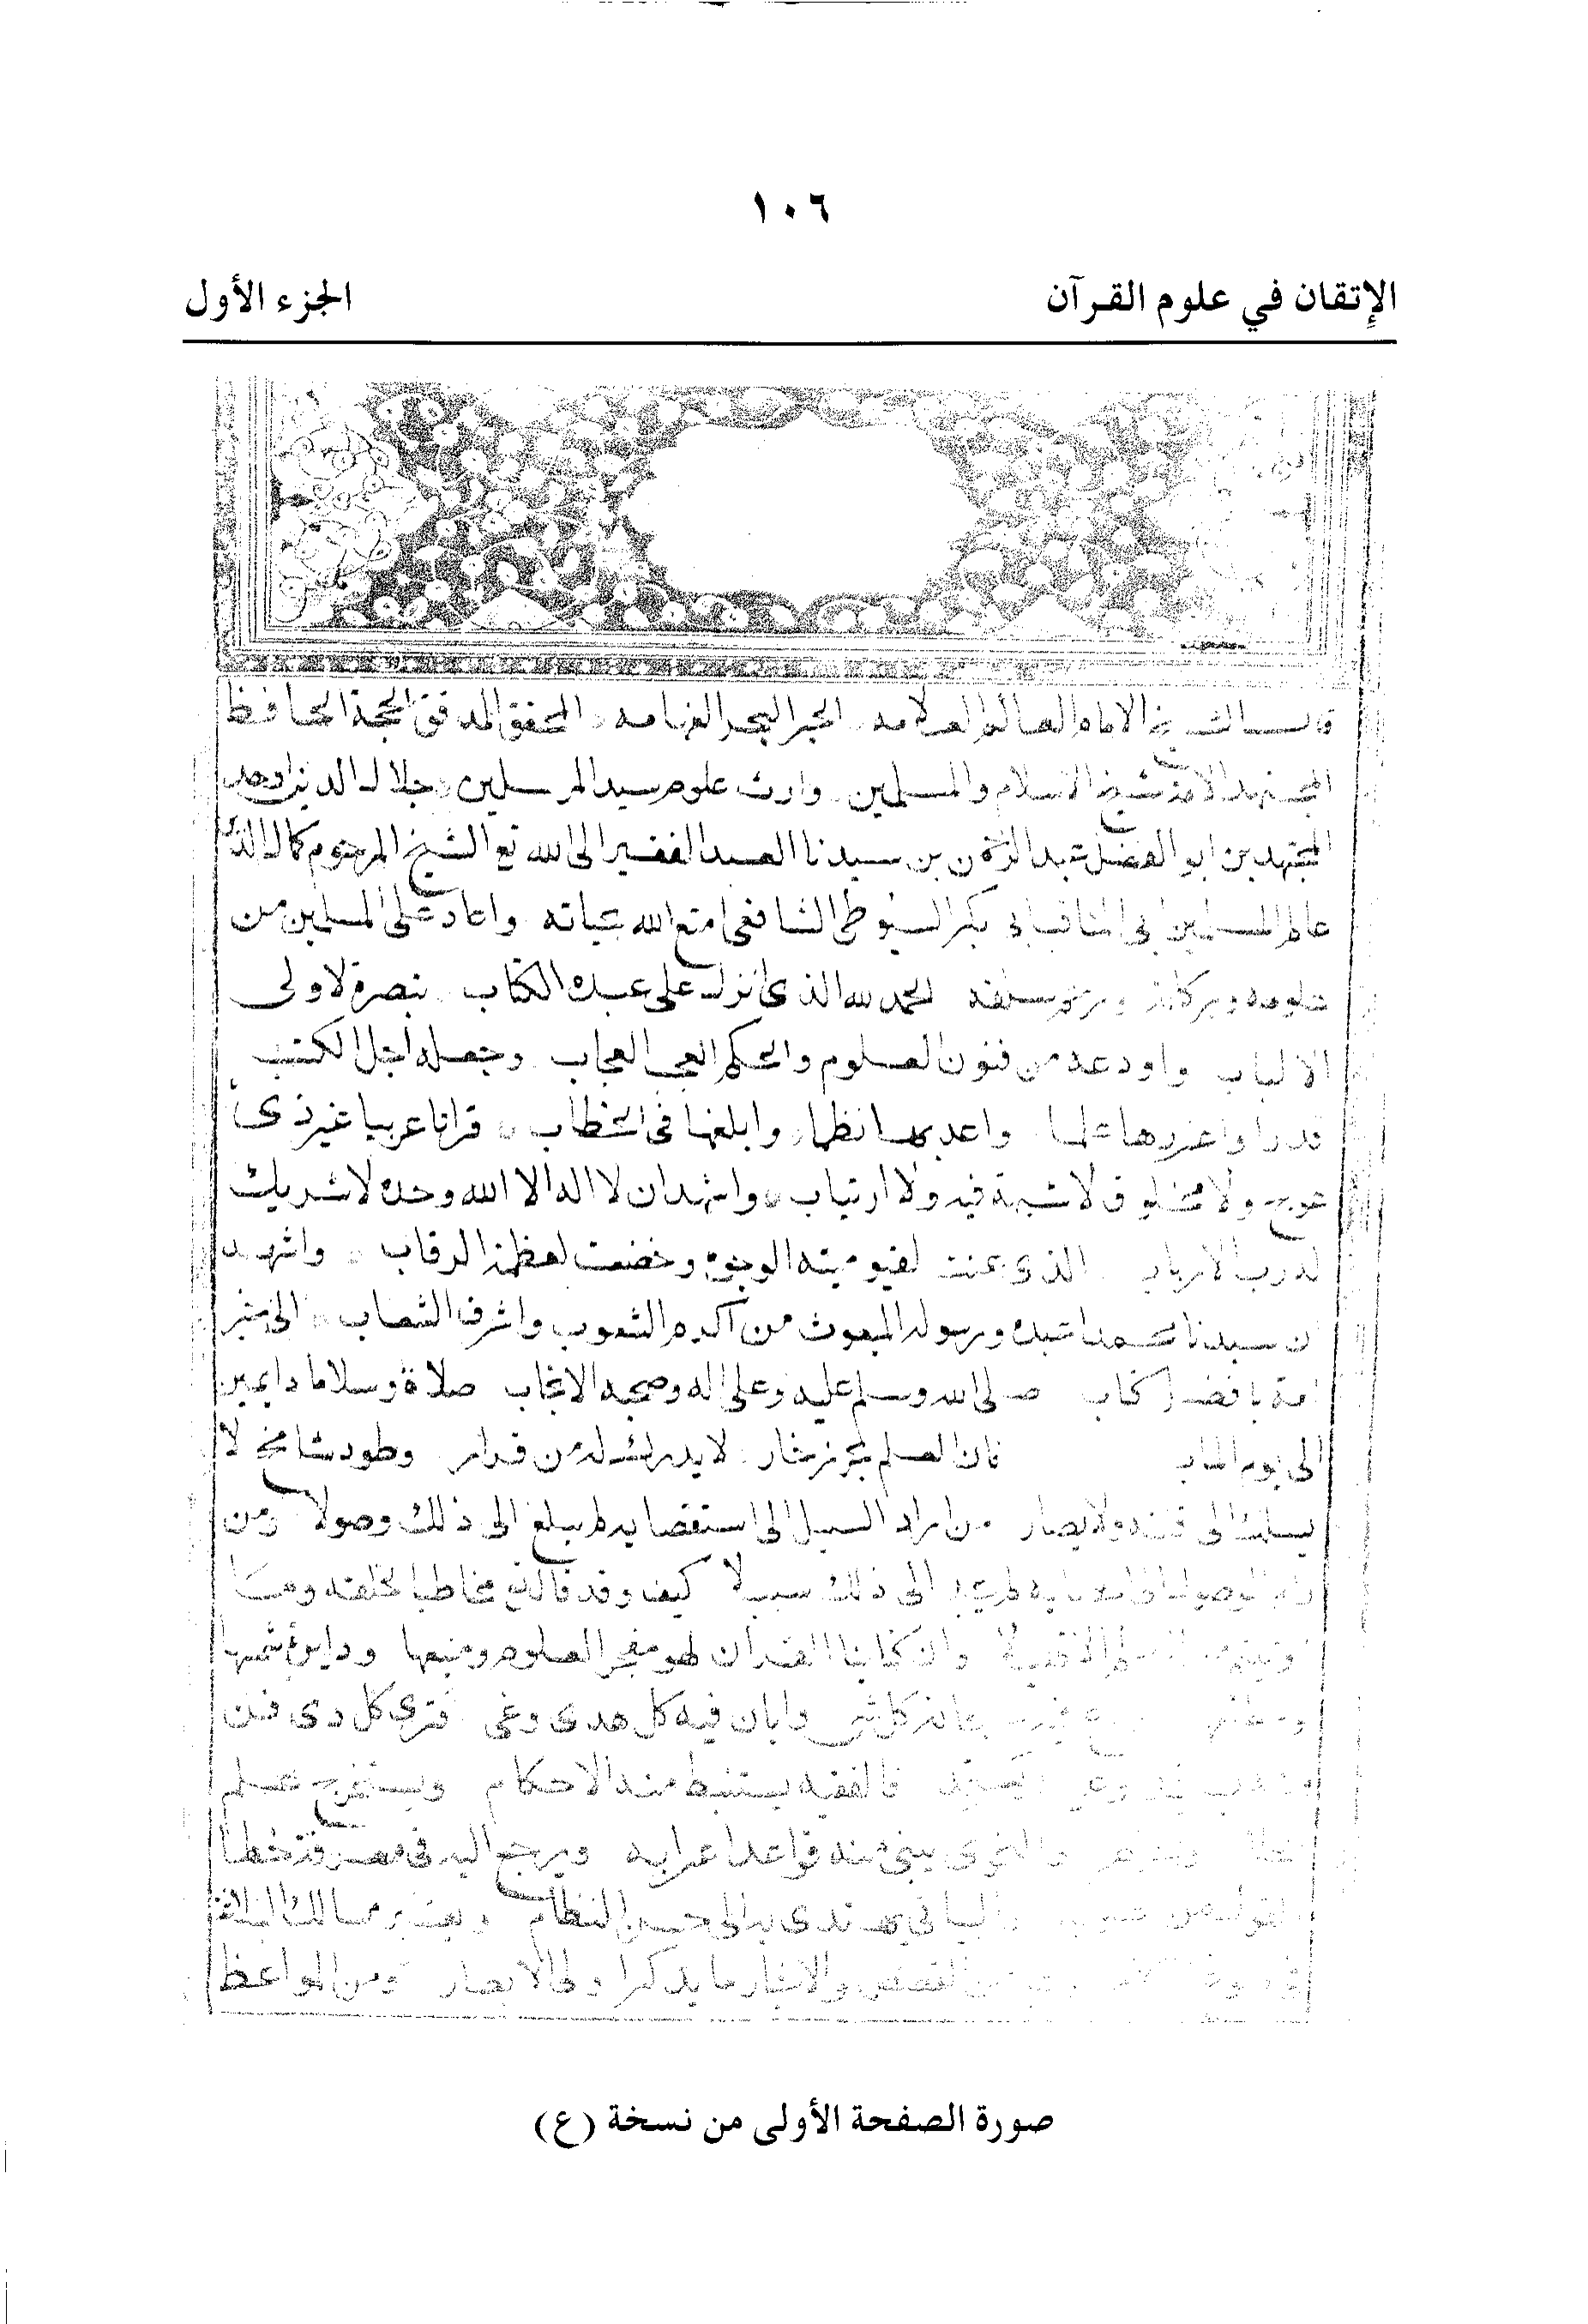 ١٠٦
الإتقان في علوم القرآن
الجزء الأول
قال الشيخ الامام العالم العلامه الحبر البحر الفهامه المحقق المدقق الحجة الحافظ
المجتهد شيخ الاسلام والمسلمين وارث علوم سيد المرسلين جلال الدين اوحد
المجتهدين ابو الفضل عبد الرحمن بن سيدنا العبد الفقير الى الله تع الشيخ المرحوم كمال الدين
عالم المسلمين ابى المناقب ابى بكر السيوطى الشافعى امتع الله بحياته واعاد على المسلمين من
علومه وبركاته الحمد لله الذى انزل على عبده الكتاب تبصرة لاولى
الالباب واودعه من فنون العلوم والحكم العجب العجاب وجعله اجل الكتب
قدرا واغزرها علما واعذبها نظما وابلغها فى الخطاب قرانا عربيا غير ذى
عوج ولا مخلوق لا شبهة فيه ولا ارتياب واشهد ان لا اله الا الله وحده لا شريك
له رب الارباب الذى عنت لقيوميته الوجوه وخضعت لعظمته الرقاب واشهد
ان سيدنا محمدا عبده ورسوله المبعوث من اكرم الشعوب واشرف الشعاب الى خير
امة بافضل كتاب صلى الله وسلم عليه وعلى اله وصحبه الانجاب صلاة وسلاما دايمين
الى يوم الماب فان العلم بحر زخار لا يدرك له من قرار وطود شامخ لا
يسلك الى قنته ولا يصار من اراد السبيل الى استقصايه لم يبلغ الى ذلك وصولا ومن
رام الوصول الى احصايه لم يجد الى ذلك سبيلا كيف وقد قال تع مخاطبا لخلقه وما
اوتيتم من العلم الا قليلا وان كتابنا القران لهو مفجر العلوم ومنبعها ودايرة شمسها
كل شى وابان فيه كل هدى وغى فترى كل ذى فن
فالفقيه يستنبط منه الاحكام ويستخرج حكم
والنحوى يبنى منه قواعد اعرابه ويرجع اليه فى معرفة خطا
القول من والبيانى يهتدى به الى حسن النظام ويعتبر مسالك البلاغة
القصص والاخبار ما يذكر اولى الابصار ومن المواعظ
صورة الصفحة الأولى من نسخة (ع)